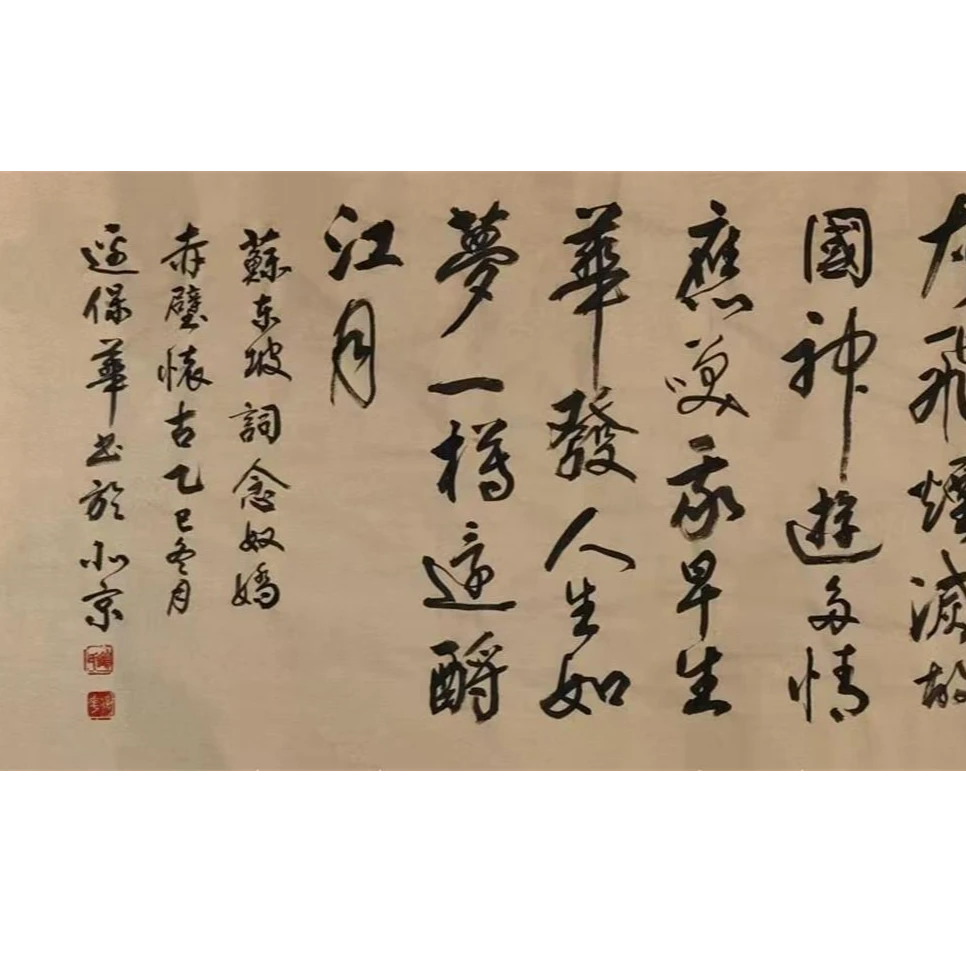 灰飛煙滅故
國神遊多情
應笑我早生
華發人生如
夢一樽還酹
江月
蘇東坡詞念奴嬌
赤壁懷古乙巳冬月
保華书於北京